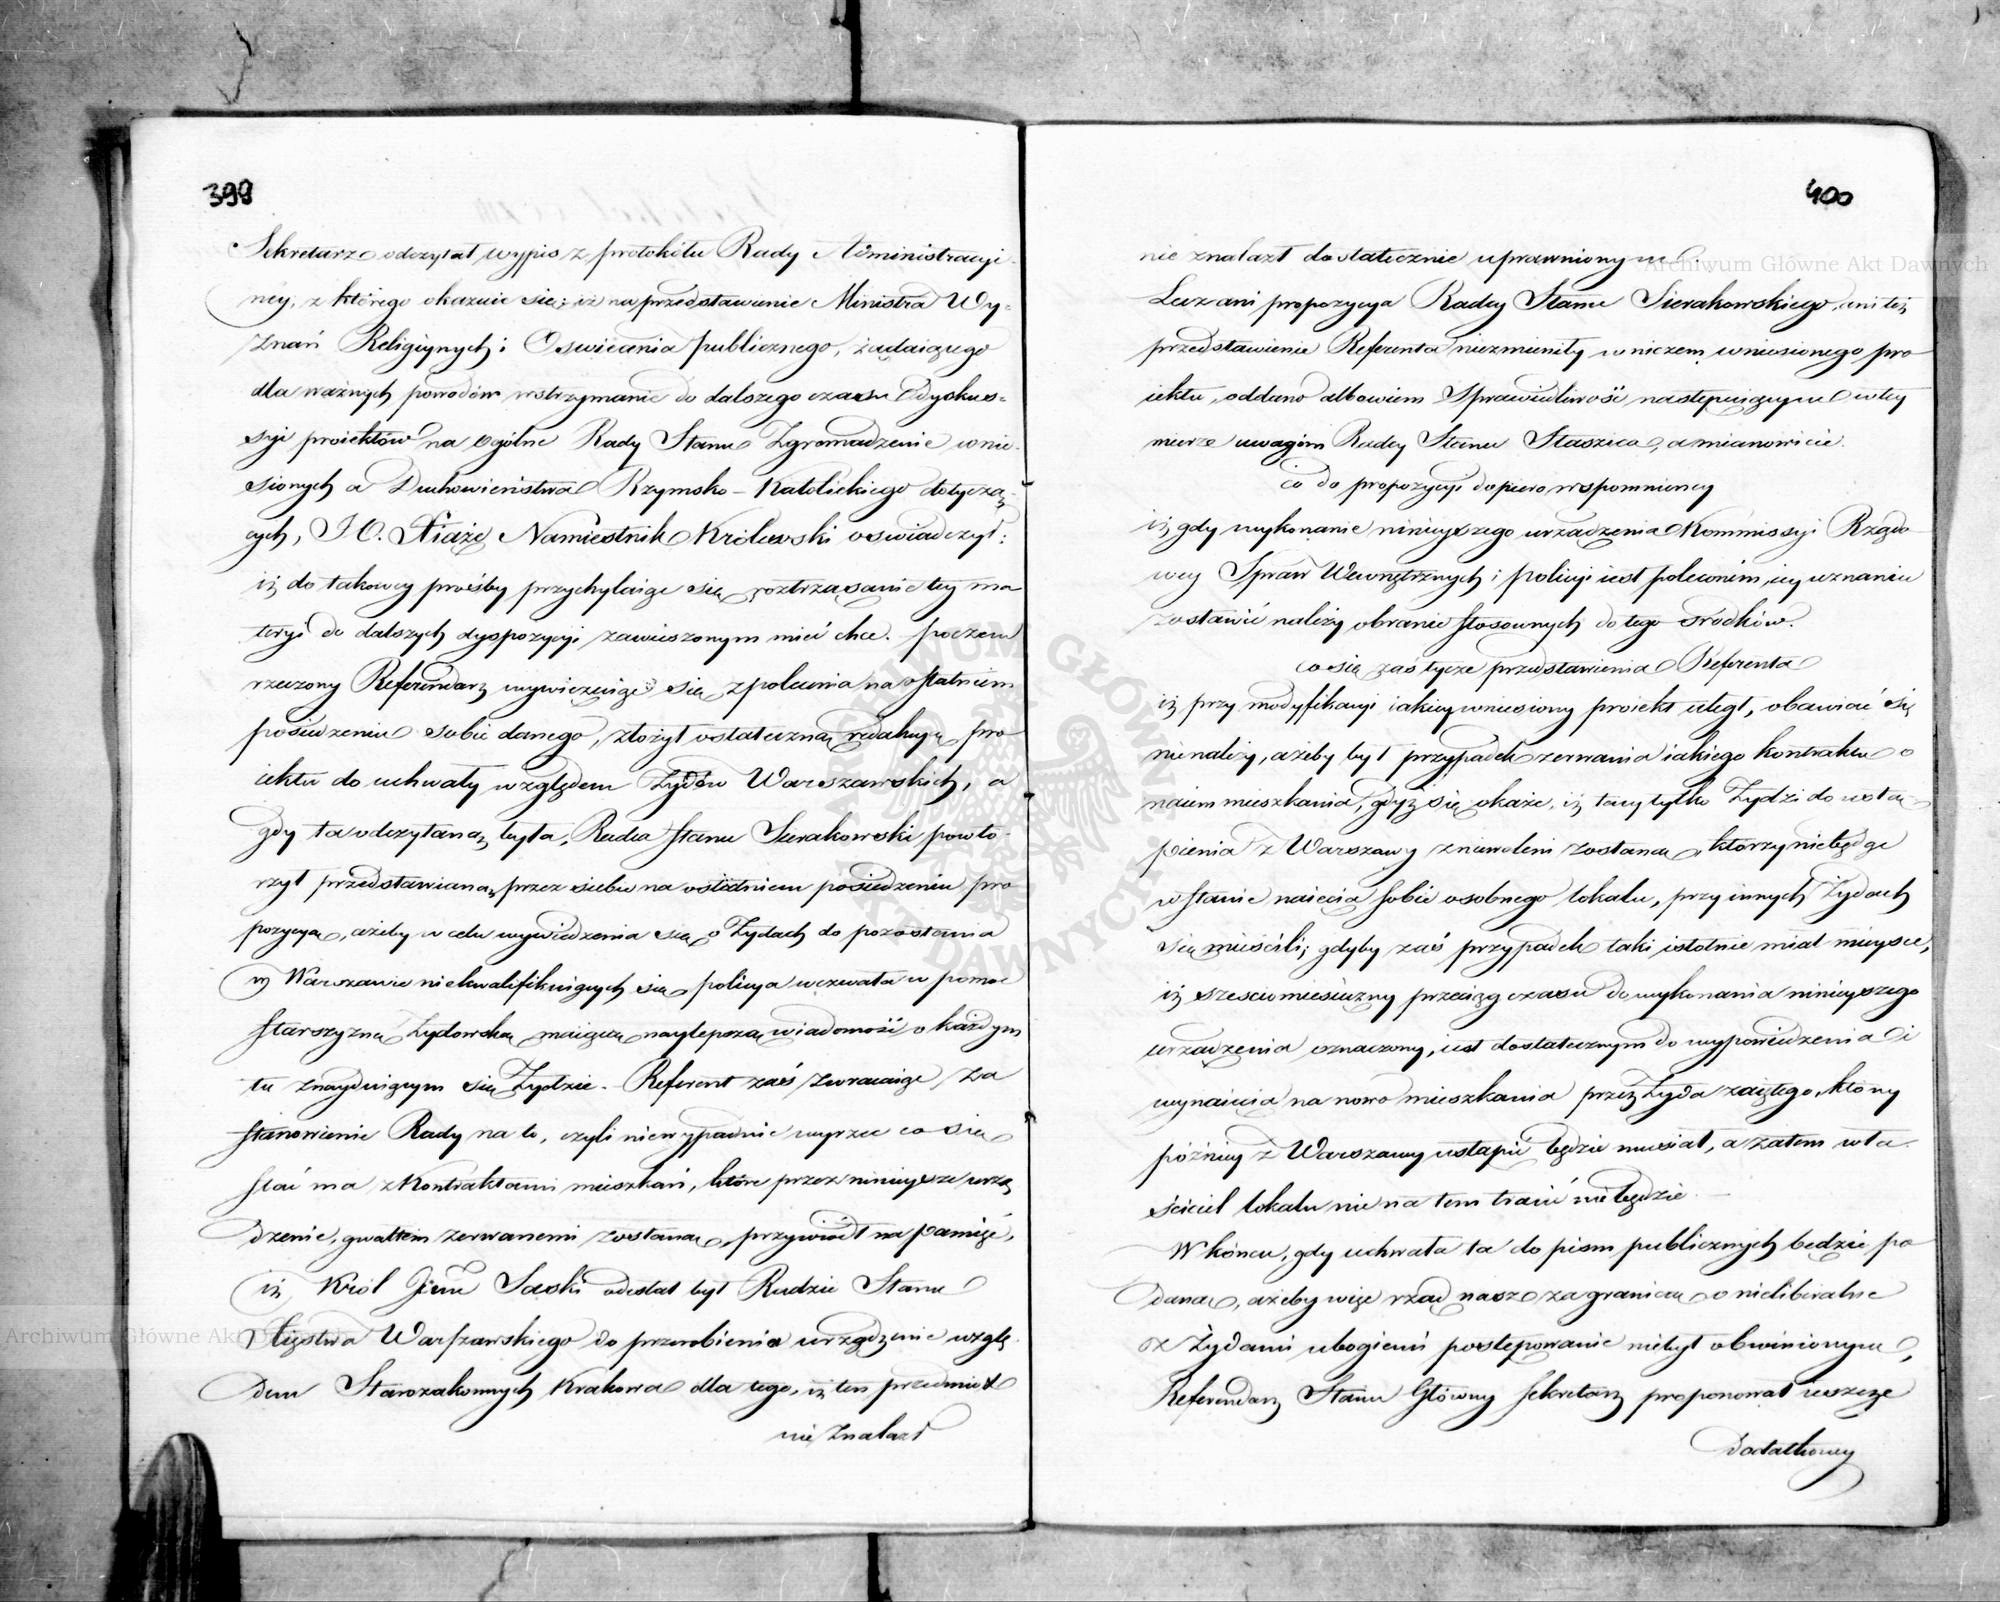 399
Sekretarz odczytał wypis z protokółu Rady Administracyi-
ney, z którego okazuie się; iż na przedstawienie Ministra Wy-
znań Religiynych i Oswiecenia publicznego, żądaiącego
dla ważnych powodów wstrzymanie do dalszego czasu dyskus-
syi proiektów na Ogólne Rady Stanu Zgromadzenie wnie-
sionych a Duchowieństwa Rzymsko-Katolickiego dotyczą-
cych, JO. Xiążę Namiestnik Królewski oswiadczył:
iż do takowey prośby przychylaiąc się, roztrząsanie tey ma
teryi do dalszych dyspozycyi zawieszonym mieć chce. poczem
rzeczony Referendarz wywięzuiąc się z polecenia na ostatniem
posiedzeniu sobie danego, złożył ostateczną redakcyą pro
iektu do uchwały względem Żydów Warszawskich, a
gdy ta odczytaną była, Radca Stanu Sierakowski powto-
rzył przedstawianą przez siebie na ostatniem posiedzeniu pro
pozycyą, ażeby w celu wywiedzenia się o Żydach do pozostania
w Warszawie niekwalifikuiących się, policya wezwała w pomoc
starszyznę Żydowską, maiącą naylepszą wiadomość o każdym
tu znayduiącym się Żydzie. Referent zaś zwracaiąc za
stanowienie Rady na to, czyli niewypadnie wyrzec co się
stać ma z Kontraktami mieszkań, które przez ninieysze urzą
dzenie, gwałtem zerwanemi zostaną, przywiódł na pamięć,
iż Król Jmć Saski odesłał był Radzie Stanu
Xięstwa Warszawskiego do przerobienia urządzenie wzglę-
dem Starozakonnych Krakowa dla tego, iż ten przedmiot
nie znalazł
400
nie znalazł dostatecznie uprawnionym.
Lecz ani propozycya Radcy Stanu Sierakowskiego, ani też
przedstawienie Referenta niezmieniły w niczem wniesionego pro
iektu, oddano albowiem Sprawiedliwość następuiącym w tey
mierze uwagom Radcy Stanu Staszica, a mianowicie.
co do propozycyi dopiero wspomnioney
iż gdy wykonanie ninieyszego urządzenia Kommissyi Rządo
wey Spraw Wewnętrznych i policyi iest poleconem, iey uznaniu
zostawić należy obranie stosownych do tego środków.
co się zaś tycze przedstawienia Referenta
iż przy modyfikacyi iakiey wniesiony proiekt uległ, obawiać się
nie należy, ażeby był przypadek zerwania iakiego kontraktu o
naiem mieszkania, gdyż się okaże, iż tacy tylko Żydzi do ustą-
pienia z Warszawy zniewoleni zostaną, którzy niebędąc
w stanie naięcia sobie osobnego lokalu, przy innych Żydach
się mieścili; gdyby zaś przypadek taki istotnie miał mieysce,
iż sześciomiesięczny przeciąg czasu do wykonania ninieyszego
urządzenia oznaczony, iest dostatecznym do wypowiedzenia i
wynaięcia na nowo mieszkania przez Żyda zaiętego, który
poźniey z Warszawy ustąpić będzie musiał, a zatem wła-
ściciel lokalu nic na tem tracić nie będzie.
W końcu, gdy uchwała ta do pism publicznych będzie po
daną, ażeby więc rząd nasz za granicą o nieliberalne
z Żydami ubogiemi postępowanie niebył obwinionym,
Referendarz Stanu Główny Sekretarz proponował ieszcze
dodatkowy
Archiwum Główne Akt Dawnych
ARCHIWUM GŁÓWNE AKT DAWNYCH
Archiwum Główne Akt Dawnych